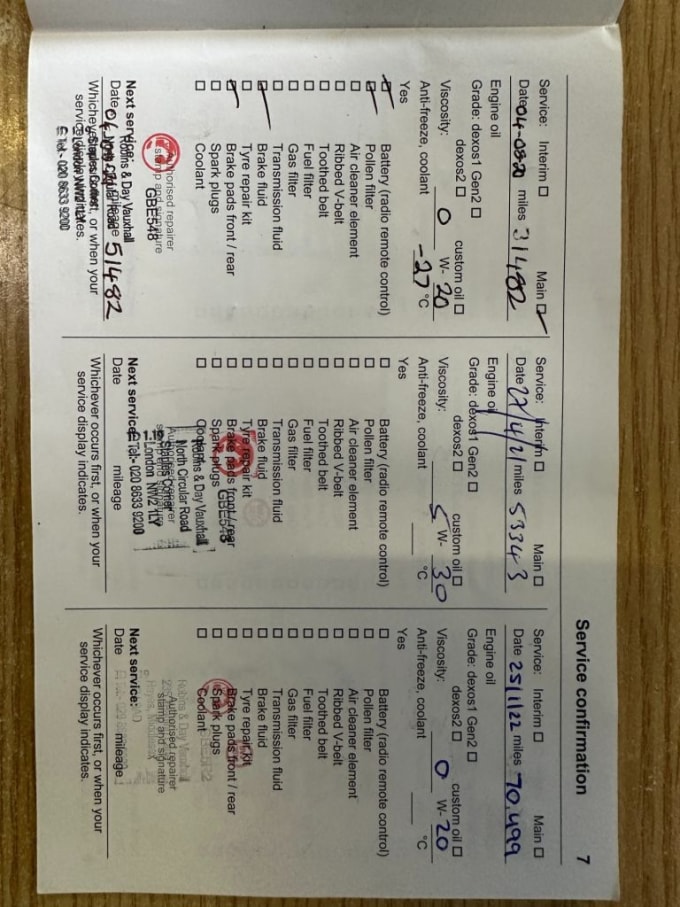 Service confirmation 7
Service: Interim ☐ Main ☑
Date 04-09-20 miles 31482
Engine oil
Grade: dexos1 Gen2 ☐
dexos2 ☐ custom oil ☐
Viscosity: 0 W- 20
Anti-freeze, coolant -27 °C
Yes
☑ Battery (radio remote control)
☑ Pollen filter
☐ Air cleaner element
☐ Ribbed V-belt
☐ Toothed belt
☐ Fuel filter
☐ Gas filter
☐ Transmission fluid
☑ Brake fluid
☐ Tyre repair kit
☑ Brake pads front / rear
☐ Spark plugs
☐ Coolant
Authorised repairer
stamp and signature
GBE548
Next service:
Robins & Day Vauxhall
Date 04 mileage 51482
North Circular Road
Whichever occurs first, or when your
Staples Corner
service display indicates.
London NW2 1LY
Tel - 020 8633 9200
Service: Interim ☐ Main ☐
Date 22/4/21 miles 53343
Engine oil
Grade: dexos1 Gen2 ☐
dexos2 ☐ custom oil ☐
Viscosity: 5 W- 30
Anti-freeze, coolant °C
Yes
☐ Battery (radio remote control)
☐ Pollen filter
☐ Air cleaner element
☐ Ribbed V-belt
☐ Toothed belt
☐ Fuel filter
☐ Gas filter
☐ Transmission fluid
☐ Brake fluid
☐ Tyre repair kit
☐ Brake pads front / rear
☐ Spark plugs
GBE548
☐ Coolant
Robins & Day Vauxhall
North Circular Road
Authorised repairer
stamp and signature
Staples Corner
London NW2 1LY
Next service:
Tel - 020 8633 9200
Date mileage
Whichever occurs first, or when your
service display indicates.
Service: Interim ☐ Main ☐
Date 25/1/22 miles 70,499
Engine oil
Grade: dexos1 Gen2 ☐
dexos2 ☐ custom oil ☐
Viscosity: 0 W- 20
Anti-freeze, coolant °C
Yes
☐ Battery (radio remote control)
☐ Pollen filter
☐ Air cleaner element
☐ Ribbed V-belt
☐ Toothed belt
☐ Fuel filter
☐ Gas filter
☐ Transmission fluid
☐ Brake fluid
☐ Tyre repair kit
☐ Brake pads front / rear
☐ Spark plugs
☐ Coolant
Robins & Day Vauxhall
Authorised repairer
stamp and signature
Next service:
Date mileage
Whichever occurs first, or when your
service display indicates.